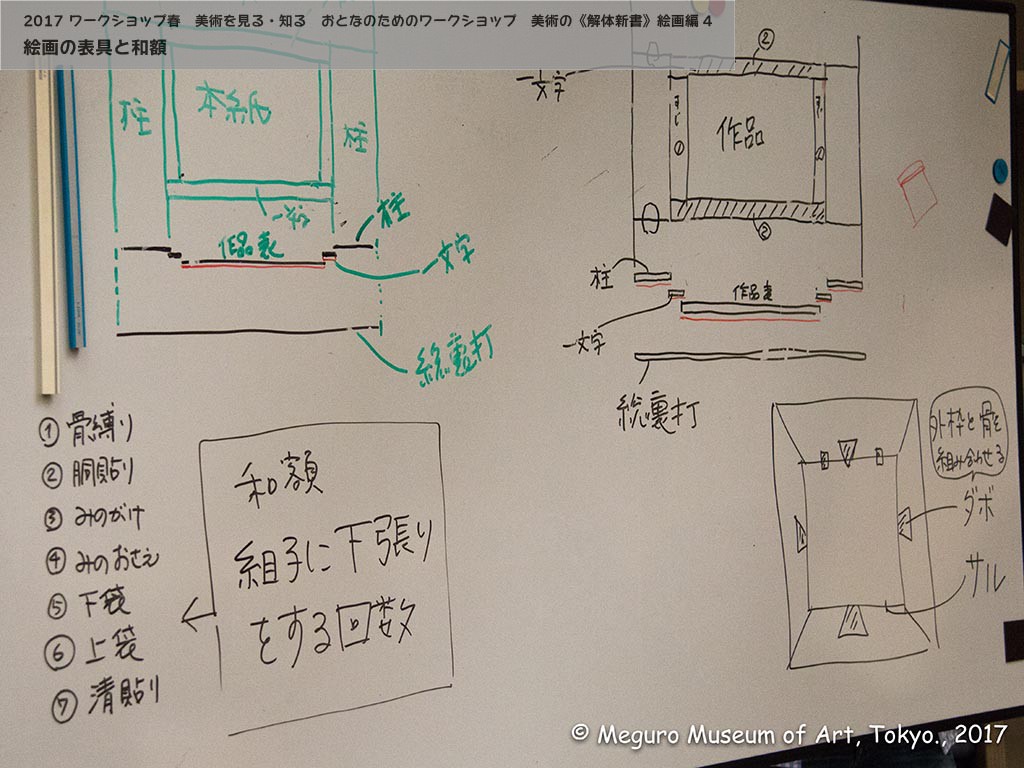 2017 ワークショップ春 美術を見る・知る おとなのためのワークショップ 美術の《解体新書》絵画編 4
絵画の表具と和額
柱
本紙
柱
一文字
作品裏
柱
一文字
総裏打
一文字
②
すじ①
作品
①
②
柱
作品裏
一文字
総裏打
①骨縛り
②胴貼り
③みのがけ
④みのおさえ
⑤下袋
⑥上袋
⑦清貼り
和額
組子に下張り
をする回数
外枠と骨を
組み合わせる
ダボ
サル
© Meguro Museum of Art, Tokyo., 2017